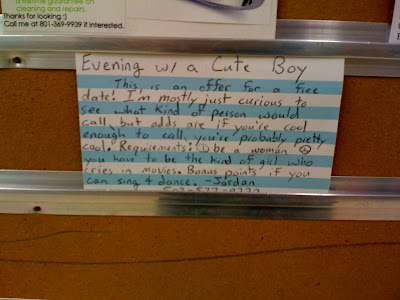 a lifetime guarantee on
cleaning and repairs.
Thanks for looking :)
Call me at 801-369-9939 if interested.
Evening w/ a Cute Boy
This is an offer for a free
date! I'm mostly just curious to
see what kind of person would
call, but odds are if you're cool
enough to call, you're probably pretty
cool. Requirements: ① be a woman ②
you have to be the kind of girl who
cries in movies. Bonus points if you
can sing & dance. -Jordan